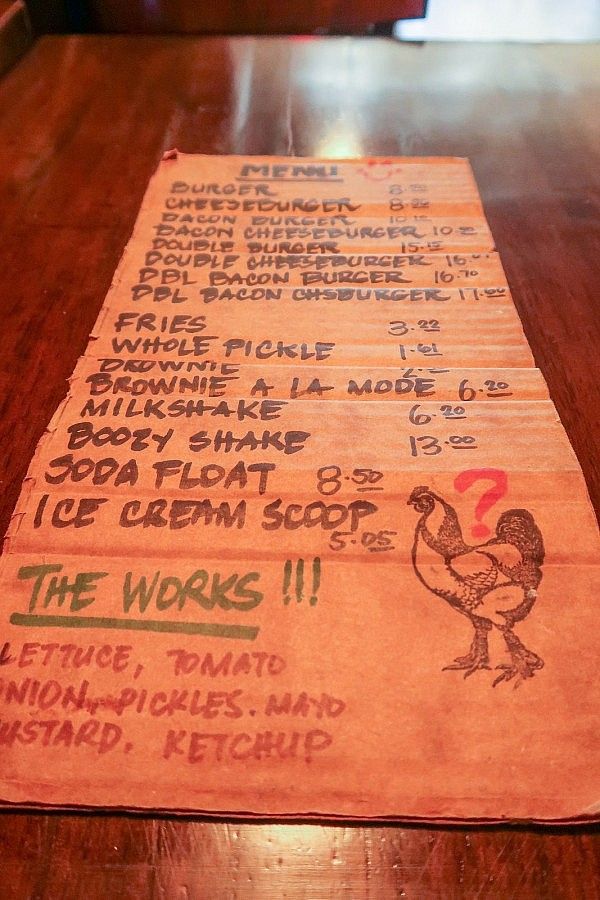 MENU
BURGER
CHEESEBURGER
BACON BURGER
BACON CHEESEBURGER
DOUBLE BURGER
DOUBLE CHEESEBURGER
DBL BACON BURGER 16.70
DBL BACON CHSBURGER
FRIES 3.22
WHOLE PICKLE 1.61
BROWNIE
BROWNIE A LA MODE 6.20
MILKSHAKE 6.20
BOOZY SHAKE 13.00
SODA FLOAT 8.50
ICE CREAM SCOOP
5.05
?
THE WORKS !!!
LETTUCE, TOMATO
ONION, PICKLES. MAYO
MUSTARD. KETCHUP